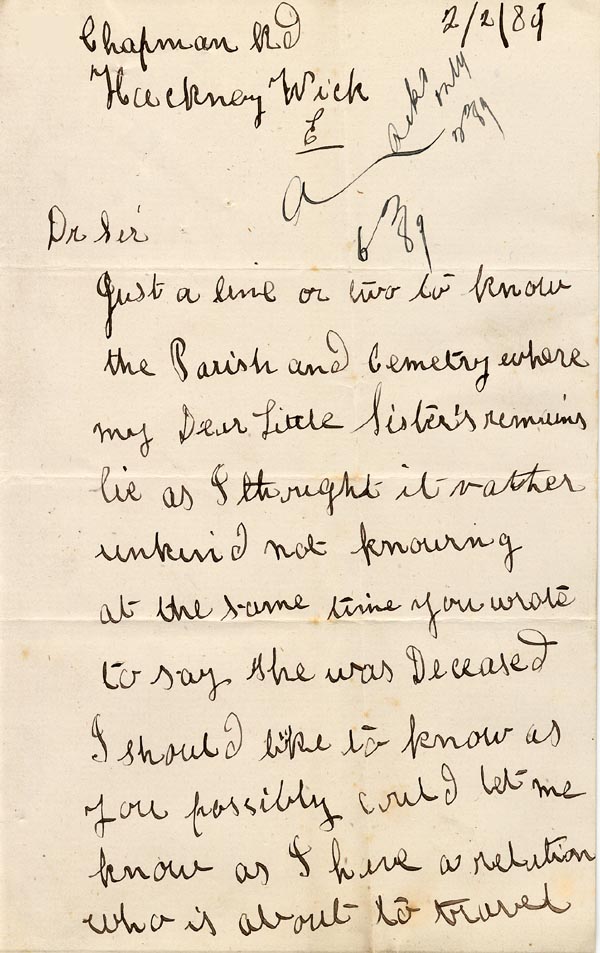 Chapman Rd 2/2/89
Hackney Wick
E
only
a
6 89
Dr Sir
Just a line or two to know
the Parish and Cemetry where
my Dear Little Sister's remains
lie as I thought it rather
unkind not knowing
at the same time you wrote
to say she was Deceased
I should like to know as
you possibly could let me
know as I have a relation
who is about to travel